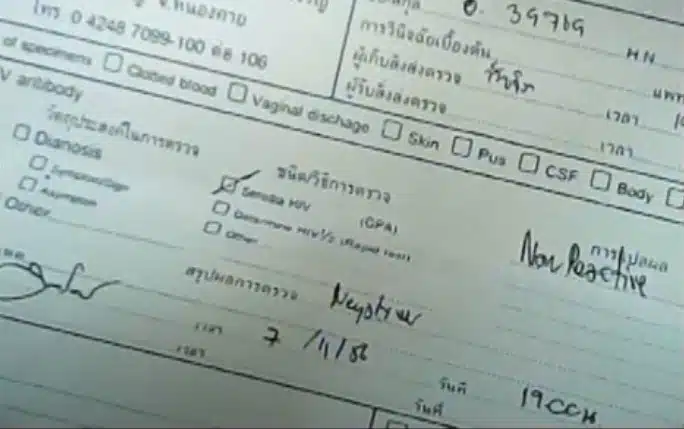 จ.หนองคาย
โทร 0 4248 7099-100 ต่อ 106
39719
การวินิจฉัยเบื้องต้น
H.N.
ผู้เก็บสิ่งส่งตรวจ
แพท
ผู้รับสิ่งส่งตรวจ
เวลา
เวลา
of specimens ☐ Clotted blood ☐ Vaginal dischage ☐ Skin ☐ Pus ☐ CSF ☐ Body
V antibody
วัตถุประสงค์ในการตรวจ
ชนิด/วิธีการตรวจ
การแปลผล
☐ Dianosis
☑ Serodia HIV (GPA)
Non Reactive
☐ Symptom/Sign
☐ Determine HIV1/2 (Rapid test)
☐ Asymptom
☐ Other
Other
สรุปผลการตรวจ Negative
เวลา 7/11/56
วันที่
เวลา
วันที่